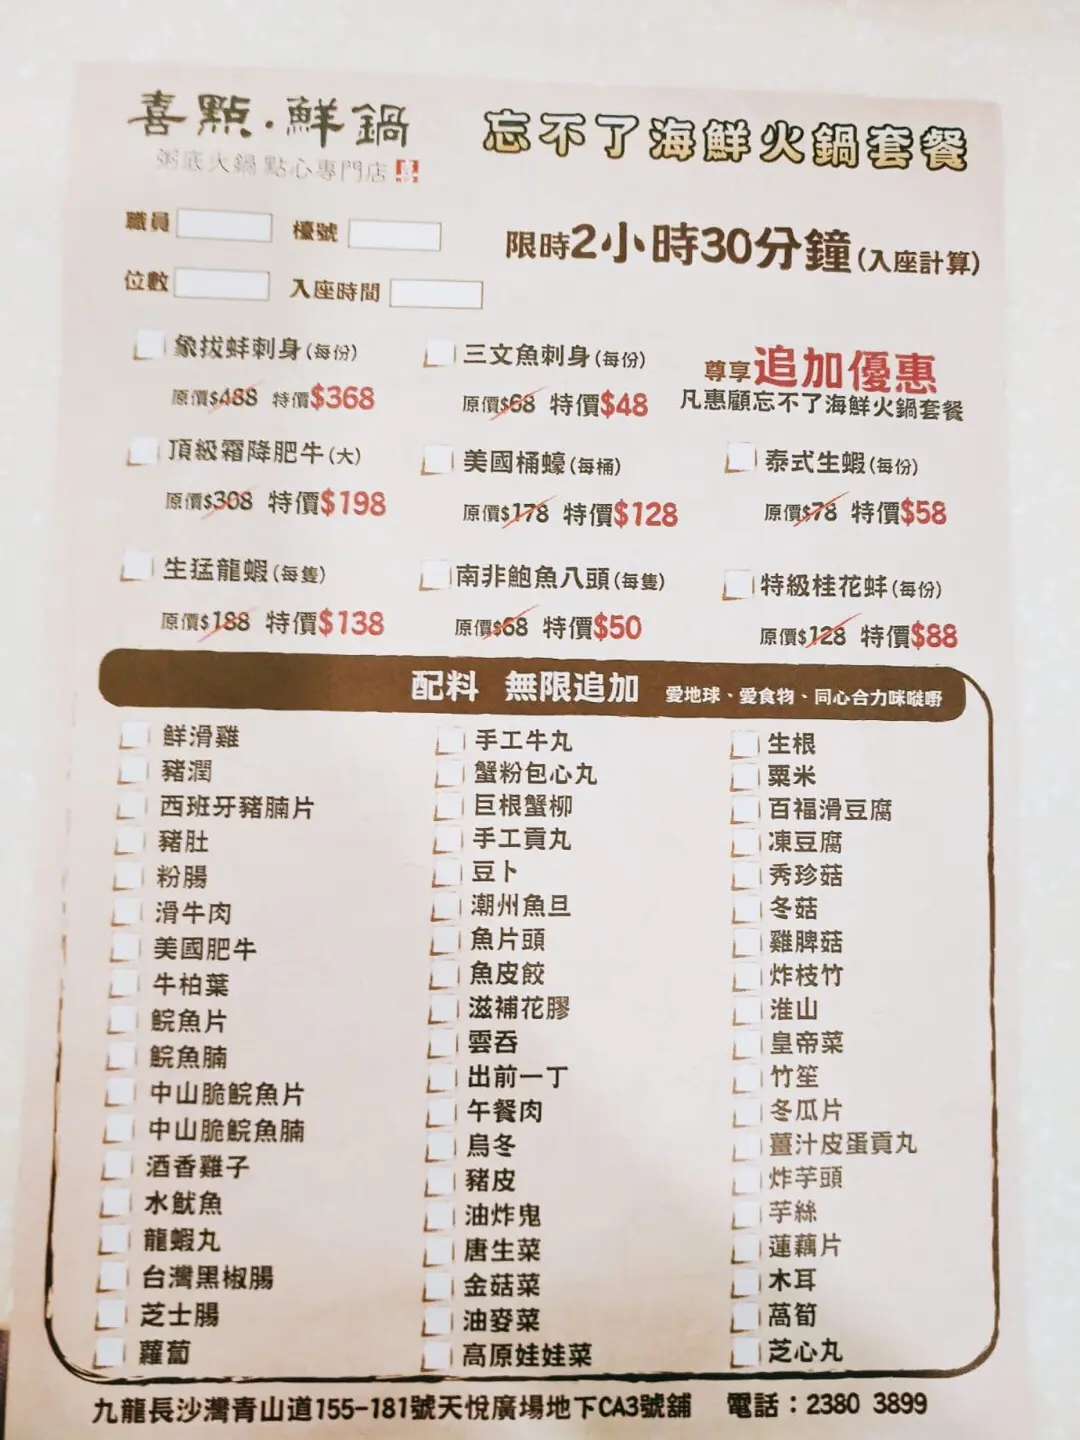 喜點·鮮鍋
粥底火鍋點心專門店
忘不了海鮮火鍋套餐
職員
檯號
限時2小時30分鐘(入座計算)
位數
入座時間
象拔蚌刺身(每份)
原價$488 特價$368
三文魚刺身(每份)
原價$68 特價$48
尊享追加優惠
凡惠顧忘不了海鮮火鍋套餐
頂級霜降肥牛(大)
原價$308 特價$198
美國桶蠔(每桶)
原價$178 特價$128
泰式生蝦(每份)
原價$78 特價$58
生猛龍蝦(每隻)
原價$188 特價$138
南非鮑魚八頭(每隻)
原價$68 特價$50
特級桂花蚌(每份)
原價$128 特價$88
配料 無限追加 愛地球、愛食物、同心合力咪嘥嘢
鮮滑雞
豬潤
西班牙豬腩片
豬肚
粉腸
滑牛肉
美國肥牛
牛柏葉
鯇魚片
鯇魚腩
中山脆鯇魚片
中山脆鯇魚腩
酒香雞子
水魷魚
龍蝦丸
台灣黑椒腸
芝士腸
蘿蔔
手工牛丸
蟹粉包心丸
巨根蟹柳
手工貢丸
豆卜
潮州魚旦
魚片頭
魚皮餃
滋補花膠
雲吞
出前一丁
午餐肉
烏冬
豬皮
油炸鬼
唐生菜
金菇菜
油麥菜
高原娃娃菜
生根
粟米
百福滑豆腐
凍豆腐
秀珍菇
冬菇
雞脾菇
炸枝竹
淮山
皇帝菜
竹笙
冬瓜片
薑汁皮蛋貢丸
炸芋頭
芋絲
蓮藕片
木耳
萵筍
芝心丸
九龍長沙灣青山道155-181號天悅廣場地下CA3號舖 電話：2380 3899